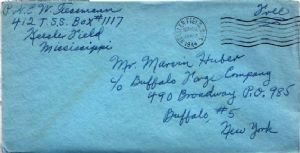 Pvt. E. W. Tiesmann
412 T.S.S. Box # 1117
Keesler Field
Mississippi
1944
Free
Mr. Marvin Huber
c/o Buffalo Forge Company
490 Broadway P.O. 985
Buffalo, #5
New York